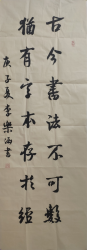 古今書法不可數
猶有本存於經
庚子夏李樂書